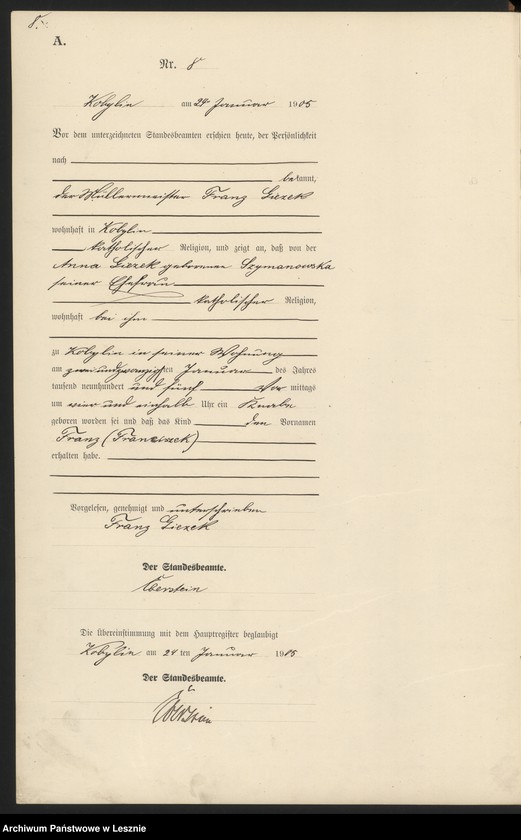 8.
A.
Nr. 8
Kobylin am 24 Januar 1905
Vor dem unterzeichneten Standesbeamten erschien heute, der Persönlichkeit
nach
bekannt,
der Müllermeister Franz Giezek
wohnhaft in Kobylin
katholischer Religion, und zeigt an, daß von der
Anna Giezek geborenen Szymanowska
seiner Ehefrau
katholischer Religion,
wohnhaft bei ihm
zu Kobylin in seiner Wohnung
am zweiundzwanzigsten Januar des Jahres
tausend neunhundert und fünf Vor mittags
um vier und einhalb Uhr ein Knabe
geboren worden sei und daß das Kind den Vornamen
Franz (Franciszek)
erhalten habe.
Vorgelesen, genehmigt und unterschrieben
Franz Giezek
Der Standesbeamte.
Eberstein
Die Übereinstimmung mit dem Hauptregister beglaubigt
Kobylin am 24 ten Januar 1905
Der Standesbeamte.
Eberstein
Archiwum Państwowe w Lesznie